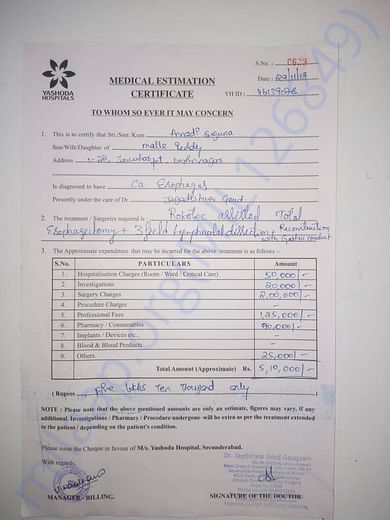 YASHODA
HOSPITALS
S.No. : 0623
MEDICAL ESTIMATION
CERTIFICATE
Date :
YH ID :
TO WHOM SO EVER IT MAY CONCERN
1. This is to certify that Sri./Smt./Kum Annadi Suguna
Son/Wife/Daughter of malle Reddy
Address
Is diagnosed to have Ca. Esophagus
Presently under the care of Dr. Jagadishwar Goud
2. The treatment / Surgeries required is Robotic assisted Total
Esophagectomy + 3 field lymphnodal dissection + Reconstruction
with Gastric conduit
3. The Approximate expenditure that may be incurred for the above treatment is as follows :-
S.No. PARTICULARS Amount
1. Hospitalisation Charges (Room / Ward / Critical Care) 50,000/-
2. Investigations 20,000/-
3. Surgery Charges 2,00,000/-
4. Procedure Charges -
5. Professional Fees 1,25,000/-
6. Pharmacy / Consumables 90,000/-
7. Implants / Devices etc., -
8. Blood & Blood Products -
9. Others. 25,000/-
Total Amount (Approximate) Rs. 5,10,000/-
(Rupees Five lakhs Ten Thousand only)
NOTE : Please note that the above mentioned amounts are only an estimate, figures may vary, if any
additional Investigations / Pharmacy / Procedure undergone will be extra as per the treatment extended
to the patient / depending on the patient's condition.
Please issue the Cheque in favour of M/s. Yashoda Hospital, Secunderabad.
With regards,
Dr. Jagdishwar Goud Gajagowni
MANAGER - BILLING.
SIGNATURE OF THE DOCTOR